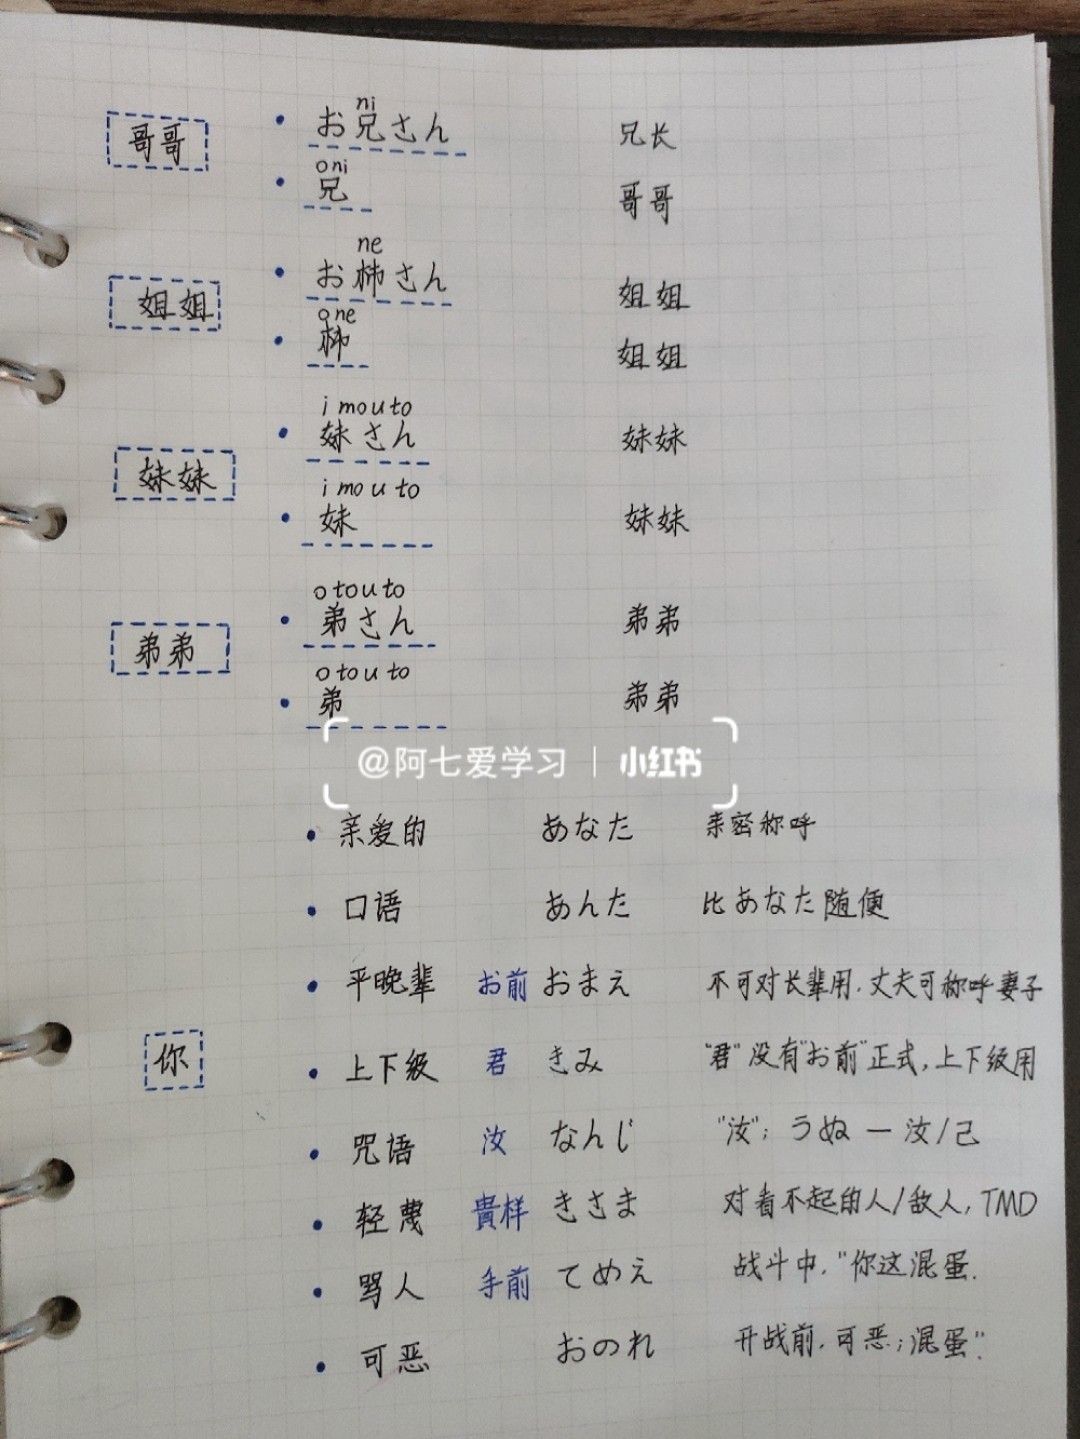 ni
哥哥 ・お兄さん 兄长
oni
・兄 哥哥
ne
姐姐 ・お柹さん 姐姐
one
・柹 姐姐
imouto
妹妹 ・妹さん 妹妹
imouto
・妹 妹妹
otouto
弟弟 ・弟さん 弟弟
otouto
・弟 弟弟
@阿七爱学习 | 小红书
・亲爱的 あなた 亲密称呼
・口语 あんた 比あなた随便
・平晚辈 お前 おまえ 不可对长辈用.丈夫可称呼妻子
你 ・上下级 君 きみ "君"没有"お前"正式,上下级用
・咒语 汝 なんじ "汝"; うぬ — 汝/己
・轻蔑 貴样 きさま 对看不起的人/敌人,TMD
・骂人 手前 てめえ 战斗中."你这混蛋.
・可恶 おのれ 开战前.可恶;混蛋".